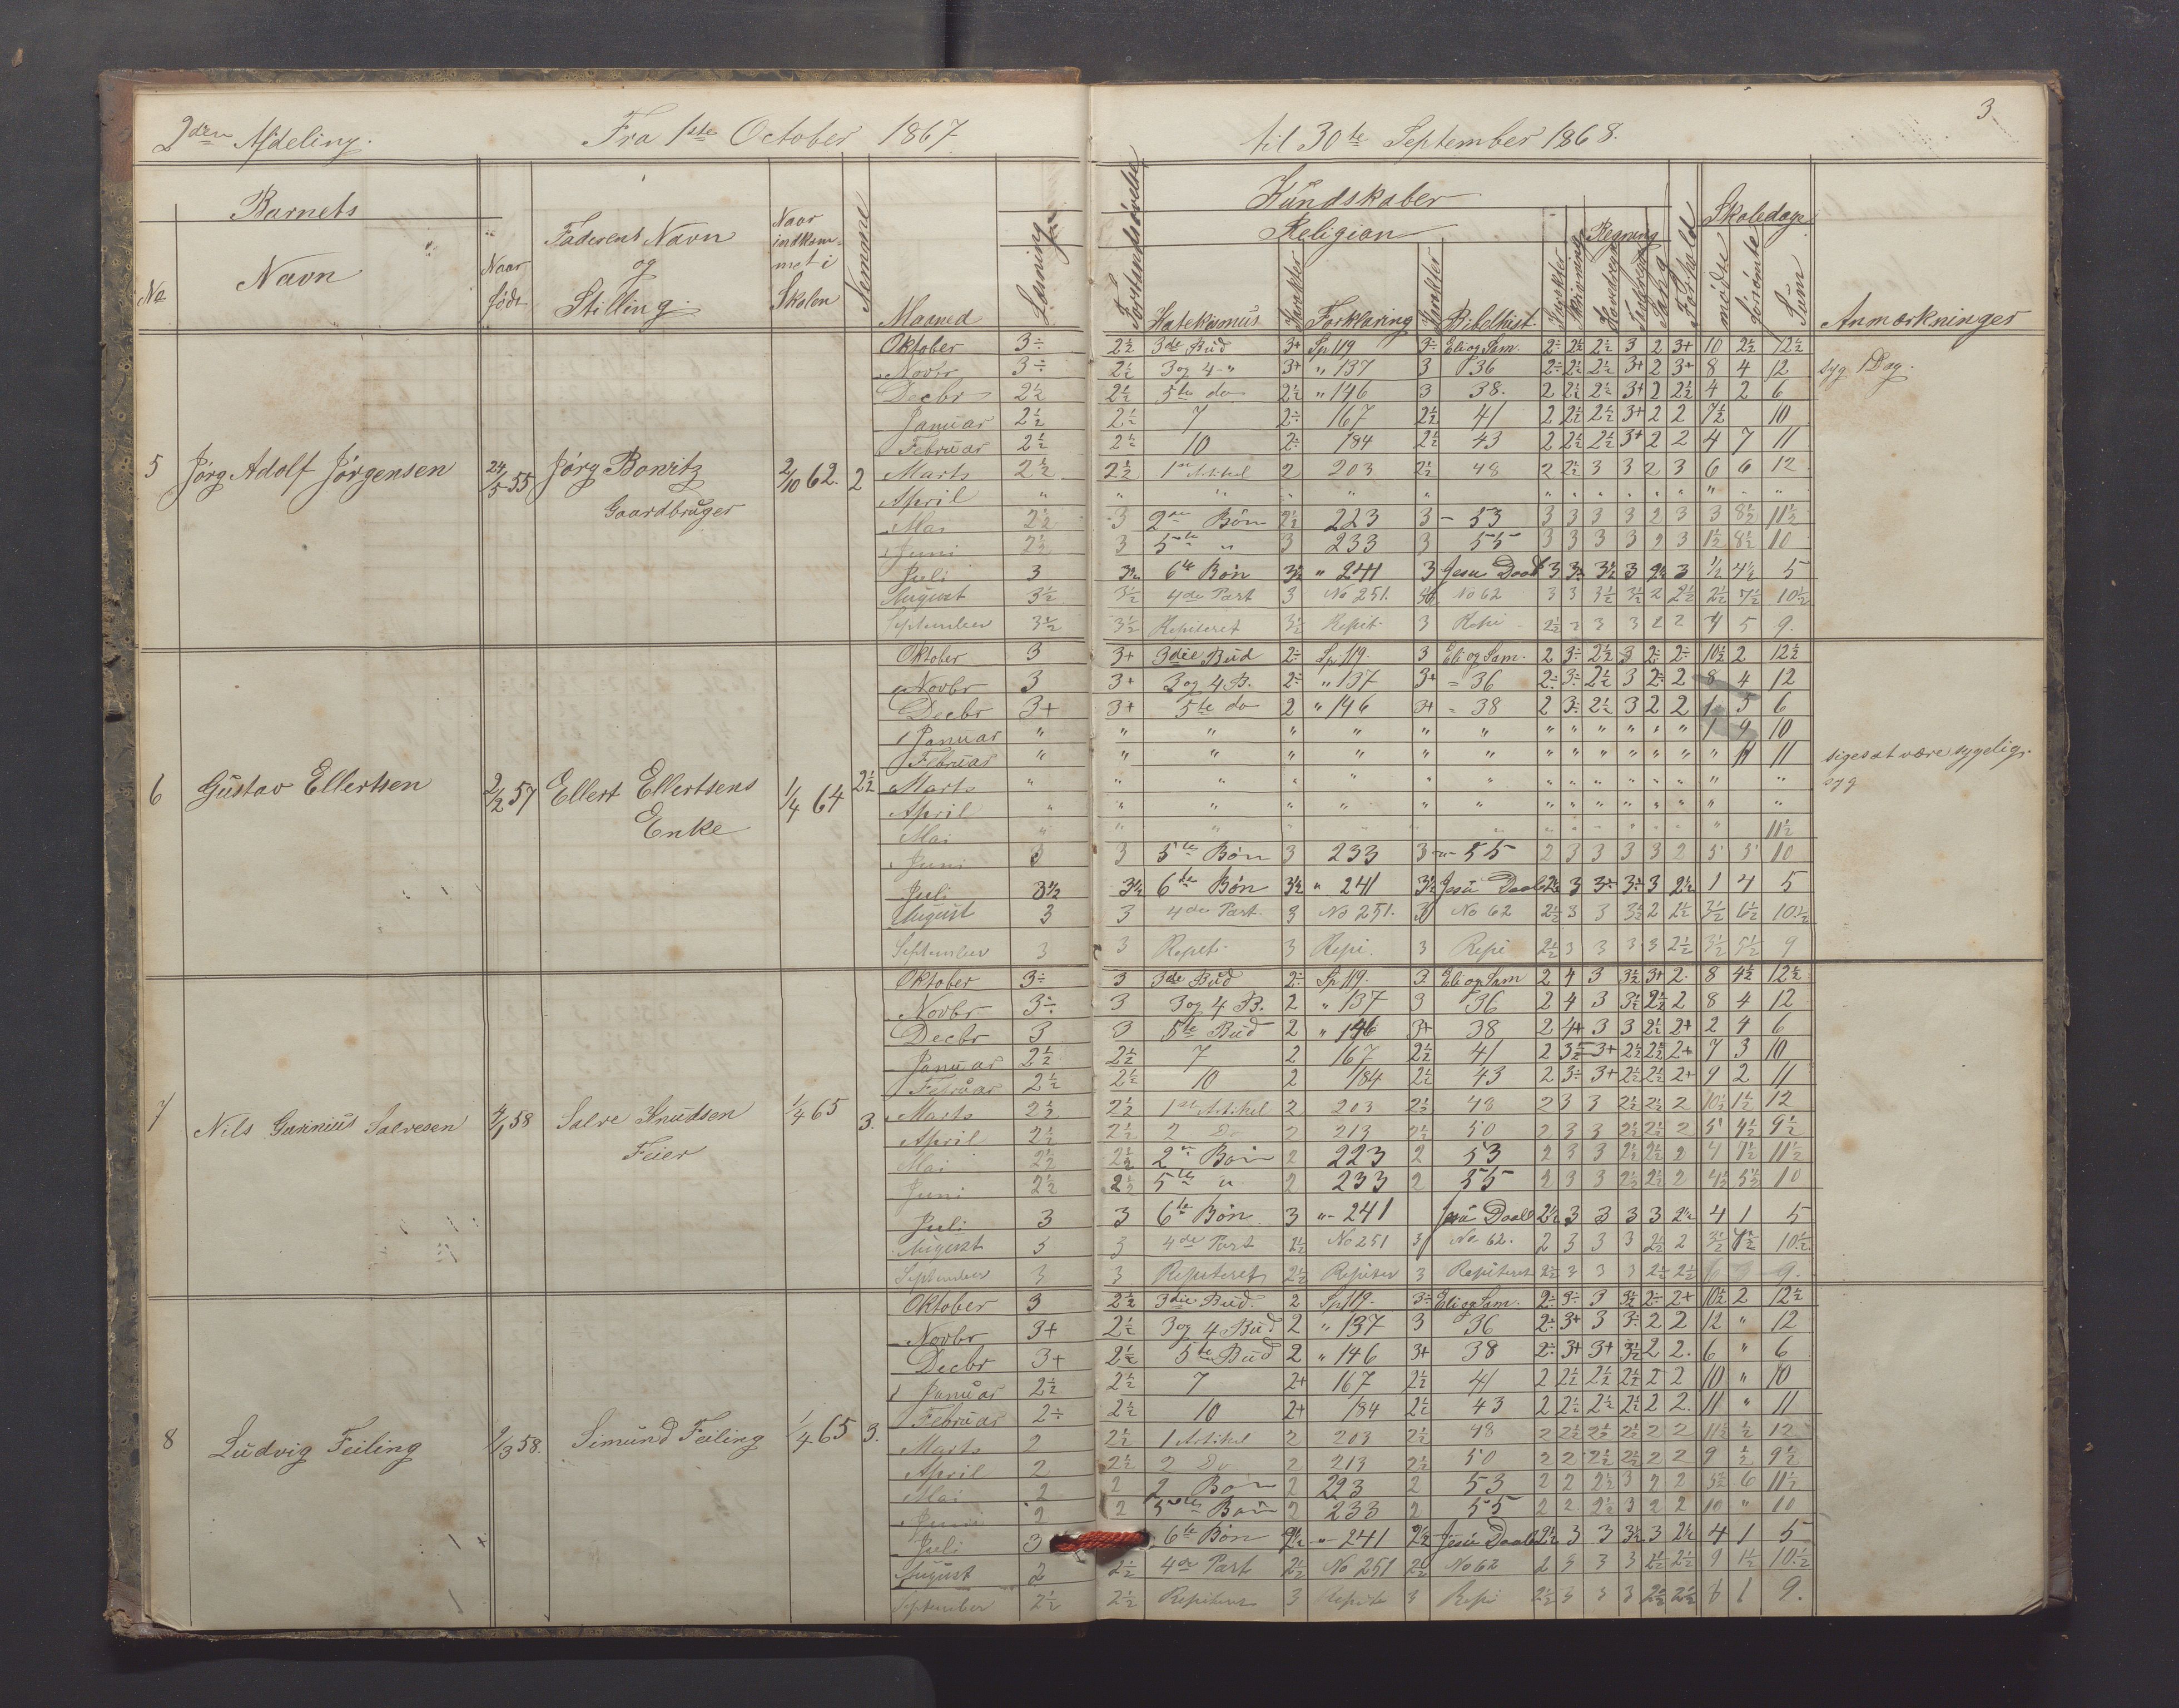 2den Afdeling. Fra 1ste October 1867 til 30te September 1868. 3
Barnets Kundskaber
Religion Regning Skoledage
No Navn Naar født Faderens Navn og Stilling Naar indkommet i Skolen Nemme Maaned Læsning Forstandsøvelse Katekismus Karakter Forklaring Karakter Bibelhist. Karakter Skrivning Hovedregn Tavleregn Sang Forhold mødte forsømte Sum Anmærkninger
5 Jørg Adolf Jørgensen 24/5 55 Jørg Bowitz Gaardbruger 2/10 62. 2
Oktober 3÷ 2½ 3de Bud 3+ Sp 119 3÷ Eli og Sam. 2÷ 2½ 2½ 3 2 3+ 10 2½ 12½
Novbr 3÷ 2½ 3 og 4 " 3+ " 137 3 36 2÷ 2½ 2½ 3+ 2 3+ 8 4 12 syg 1 Dag.
Decbr 2½ 2½ 5te do 2½ " 146 3 38. 2 2½ 2½ 3+ 2 2½ 4 2 6
Januar 2½ 2½ 7 2÷ 167 2½ 41 2 2½ 2½ 3+ 2 2 7½ 10
Februar 2½ 2½ 10 2÷ 184 2½ 43 2 2½ 2½ 3+ 2 2 4 7 11
Marts 2½ 2½ 1ste Artikel 2 203 2½ 48 2 2½ 3 3 2 3 6 6 12
April " " " " " " " " " " " " " " " "
Mai 2½ 3 2den Bøn 2½ 223 3 - 53 3 3 3 3 2 3 3 8½ 11½
Juni 2½ 3 5te " 3 233 3 55 3 3 3 3 2 3 1½ 8½ 10
Juli 3 3½ 6te Bøn 3½ " 241 3 Jesu Daab 3 3÷ 3½ 3 2½ 3 ½ 4½ 5
August 3½ 3½ 4de Part 3 No 251. No 62 3 3 3½ 3½ 2 2½ 2½ 7½ 10½
September 3½ 3½ Repiteret 3½ Repit. 3 Repi 2½ 2 3 3 2 2 4 5 9.
6 Gustav Ellertsen 2/2 57 Ellert Ellertsens Enke 1/4 64 2½
Oktober 3 3+ 3die Bud 2÷ Sp. 119. 3 Eli og Sam. 2 3÷ 2½ 3 2÷ 2÷ 10½ 2 12½
Novbr 3 3+ 3 og 4 B. 2÷ " 137 3+ = 36 2÷ 3÷ 2½ 3 2÷ 2 8 4 12
Decbr 3+ 3+ 5te do 2 " 146 3+ = 38 2 3÷ 2½ 3 2 2 1 5 6
Januar " " " " " " " " " " " " " 1 9 10
Februar " " " " " " " " " " " " " " 11 11 siges at være sygelig.
Marts " " " " " " " " " " " " " " " syg
April " " " " " " " " " " " " " " "
Mai " " " " " " " " " " " " " " 11½
Juni 3 3 5te Bøn 3 233 3 -"- 55 2 3 3 3 3 2 5 5 10
Juli 3½ 3½ 6te Bøn 3½ " 241 3½ Jesu Daab 2½ 3 3÷ 3÷ 3 2½ 1 4 5
August 3 3 4de Part. 3 No 251. 3 No 62 2½ 3 3 3½ 2 2½ 3½ 6½ 10½
September 3 3 Repet. 3 Repi. 3 Repi 2½ 3 3 3 3 2½ 3½ 5½ 9
7 Nils Gunnius Salvesen 4/1 58 Salve Knudsen Feier 1/4 65 3.
Oktober 3÷ 3 3de Bud 2÷ Sp. 119. 3 Eli og Sam 2 4 3 3½ 3+ 2. 8 4½ 12½
Novbr 3÷ 3 3 og 4 B. 2 " 137 3 36 2 4 3 3½ 2½ 2 8 4 12
Decbr 3 3 5te Bud 2 " 146 3+ 38 2 4+ 3 3 2½ 2+ 2 4 6
Januar 2½ 2½ 7 2 167 2½ 41 2 3½ 3+ 2½ 2½ 2+ 7 3 10
Februar 2½ 2½ 10 2 184 2½ 43 2 3÷ 3+ 2½ 2½ 2+ 9 2 11
Marts 2½ 2½ 1ste Artikel 2 203 2½ 48 2 3 3 2½ 2½ 2 10½ 1½ 12
April 2½ 2½ 2 Do 2 213 2½ 50 2 3 3 2½ 2½ 2 5 4½ 9½
Mai 2½ 2½ 2den Bøn 2 223 2 53 2 3 3 2½ 2½ 2 4 7½ 11½
Juni 2½ 2½ 5te " 2 233 2 55 2 3 3 2½ 2½ 2 4½ 5½ 10
Juli 3 3 6te Bøn 3 "- 241 Jesu Daab 2½ 3 3 3 3 2½ 4 1 5
August 3 3 4de Part 2½ No 251 3 No. 62. 2 3 3 3 2½ 2 3½ 7½ 10½
September 3 3 Repeteret 2½ Repiter 3 Repiteret 2½ 3 3 3 2½ 2½ 6 3 9.
8 Ludvig Feiling 2/3 58. Simund Feiling 1/4 65 3.
Oktober 3 2½ 3die Bud. 2 Sp 119. 3÷ Eli og Sam. 2÷ 3÷ 3 3½ 2÷ 2+ 10½ 2 12½
Novbr 3+ 2½ 3 og 4 Bud 2 " 137 3 36 2÷ 3+ 3 3÷ 2 2 12 " 12
Decbr 3+ 2½ 5te Bud 2 " 146 3+ 38 2÷ 3+ 3+ 3½ 2 2. 6 " 6
Januar 2½ 2½ 7 2+ 167 2½ 41 2 2½ 2½ 2½ 2 2 10 " 10
Februar 2÷ 2½ 10 2+ 184 2½ 43 2 2½ 2½ 2½ 2 2. 11 " 11
Marts 2 2½ 1 Artikel 2 203 2½ 48 2 2½ 2½ 2½ 2 2 11½ ½ 12
April 2 2½ 2 Do 2 213 2½ 50 2 2 2½ 2½ 2 2 9 ½ 9½
Mai 2 2 2 Bøn 2 223 2 53 2 2 2½ 3 2 2 5½ 6 11½
Juni 2 2 5te Bøn 2 233 2 55 2 2 2½ 3 2 2 10 " 10
Juli 3 6te Bøn 2½ "- 241 2½ Jesu Daab 2½ 3 3 3½ 3 2½ 4 1 5
August 2 2½ 4de Part 2½ No 251 2½ No 62 2 3 3 3 2½ 2½ 9 1½ 10½
September 2½ 2½ Repiteret 3 Repite 3 Repi 2½ 3 3 3 2½ 2½ 8 1 9.